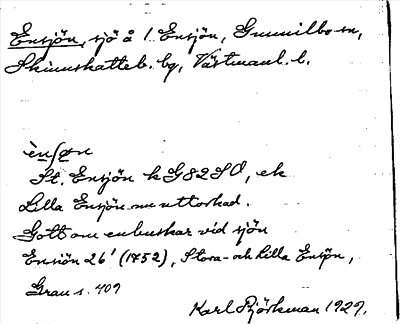 Ensjön, sjö å 1. Ensjön, Gunnilbo sn,
Skinnskatteb. bg, Västmanl. l.
ènʃøn
St. Ensjön k G 82 SO, ek
Lilla Ensjön nu uttorkad.
Gott om enbuskar vid sjön
Ensiön 26' (1752), Stora- och Lilla Ensjön,
Grau s. 409
Karl Björkman 1929.